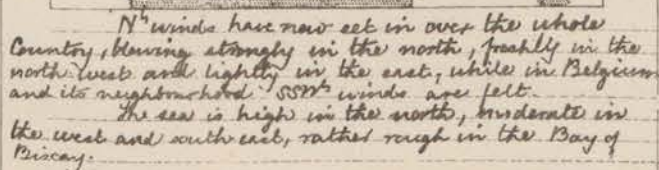 Nly winds have now set in over the whole
Country, blowing strongly in the north, freshly in the
north west and lightly in the east, while in Belgium
and its neighbourhood SSWly winds are felt.
The sea is high in the north, moderate in
the west and south east, rather rough in the Bay of
Biscay.